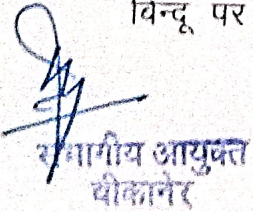 विन्दू पर
संभागीय आयुक्त
बीकानेर